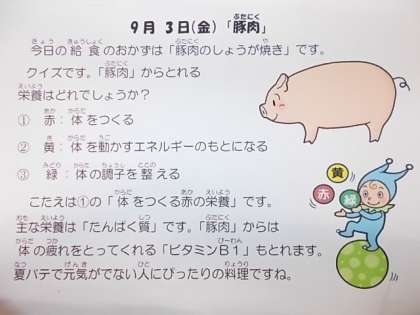 9月 3日(金)「豚肉」
今日の給食のおかずは「豚肉のしょうが焼き」です。
クイズです。「豚肉」からとれる
栄養はどれでしょうか？
① 赤：体をつくる
② 黄：体を動かすエネルギーのもとになる
③ 緑：体の調子を整える
黄
赤
緑
こたえは①の「体をつくる赤の栄養」です。
主な栄養は「たんぱく質」です。「豚肉」からは
体の疲れをとってくれる「ビタミンB1」もとれます。
夏バテで元気がでない人にぴったりの料理ですね。